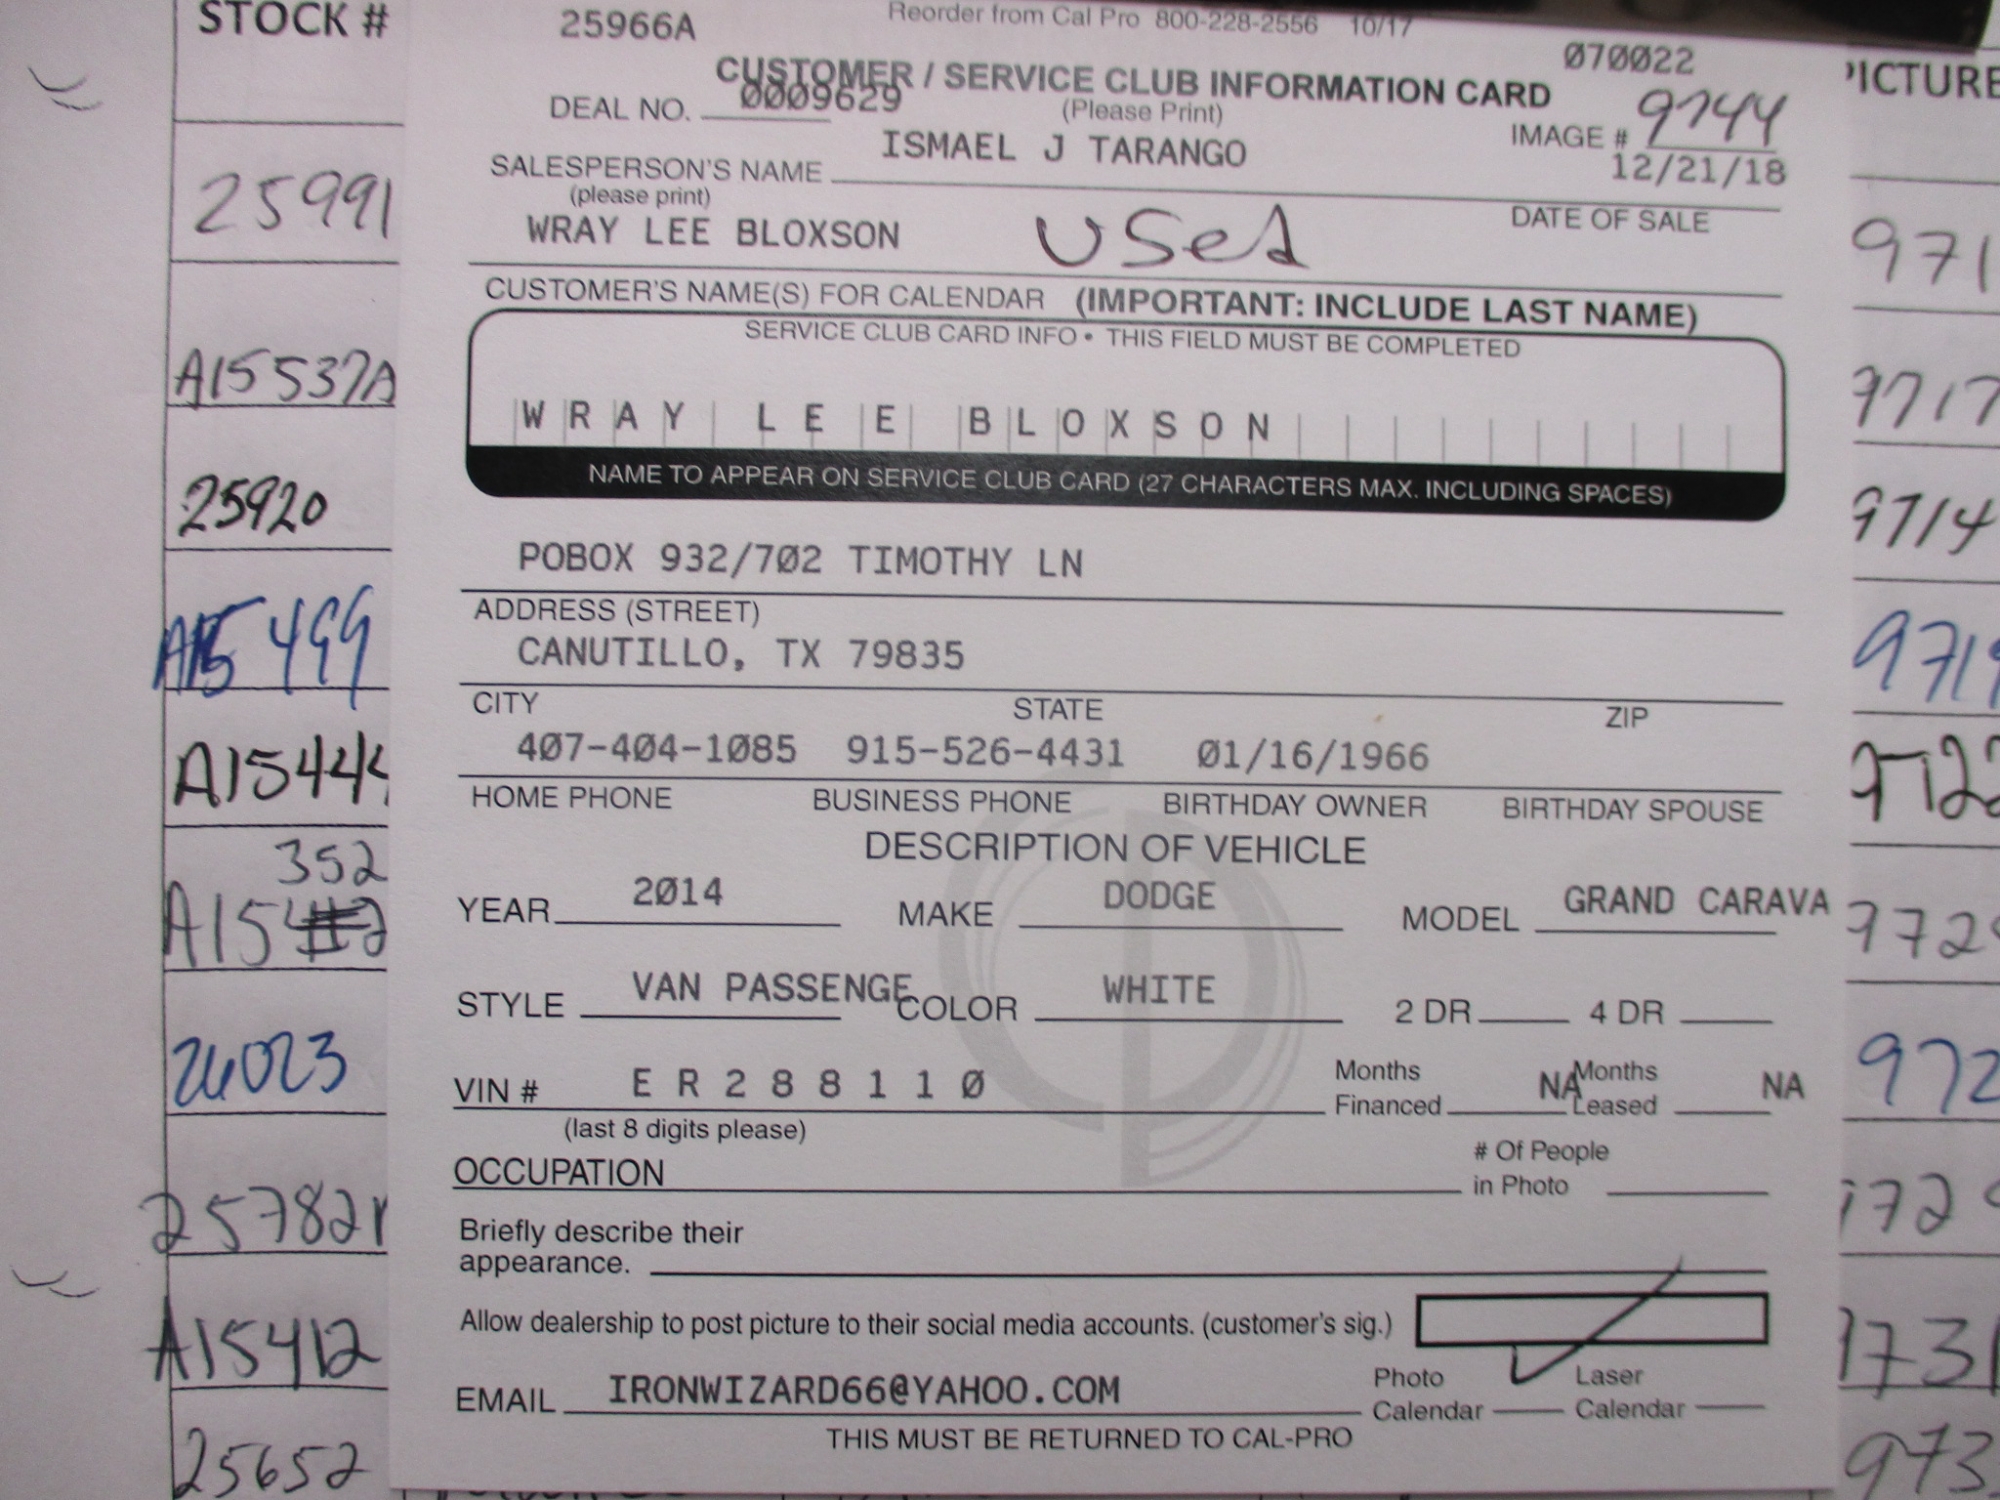 STOCK #
25966A
Reorder from Cal Pro 800-228-2556 10/17
070022
CUSTOMER / SERVICE CLUB INFORMATION CARD
DEAL NO. 0009629
(Please Print)
IMAGE # 9744
ISMAEL J TARANGO
12/21/18
SALESPERSON'S NAME
(please print)
DATE OF SALE
WRAY LEE BLOXSON
Used
CUSTOMER'S NAME(S) FOR CALENDAR (IMPORTANT: INCLUDE LAST NAME)
SERVICE CLUB CARD INFO • THIS FIELD MUST BE COMPLETED
WRAY LEE BLOXSON
NAME TO APPEAR ON SERVICE CLUB CARD (27 CHARACTERS MAX. INCLUDING SPACES)
POBOX 932/702 TIMOTHY LN
ADDRESS (STREET)
CANUTILLO, TX 79835
CITY STATE ZIP
407-404-1085 915-526-4431 01/16/1966
HOME PHONE BUSINESS PHONE BIRTHDAY OWNER BIRTHDAY SPOUSE
DESCRIPTION OF VEHICLE
YEAR 2014 MAKE DODGE MODEL GRAND CARAVA
STYLE VAN PASSENGE COLOR WHITE 2 DR 4 DR
VIN # ER288110 Months Financed NA Months Leased NA
(last 8 digits please)
OCCUPATION # Of People in Photo
Briefly describe their
appearance.
Allow dealership to post picture to their social media accounts. (customer's sig.)
EMAIL IRONWIZARD66@YAHOO.COM Photo Calendar Laser Calendar
THIS MUST BE RETURNED TO CAL-PRO
25991
A15537A
25920
A15499
A15444
352
26023
25782R
A15412
25652
PICTURE
971
9717
9714
9719
9722
972
972
9731
973